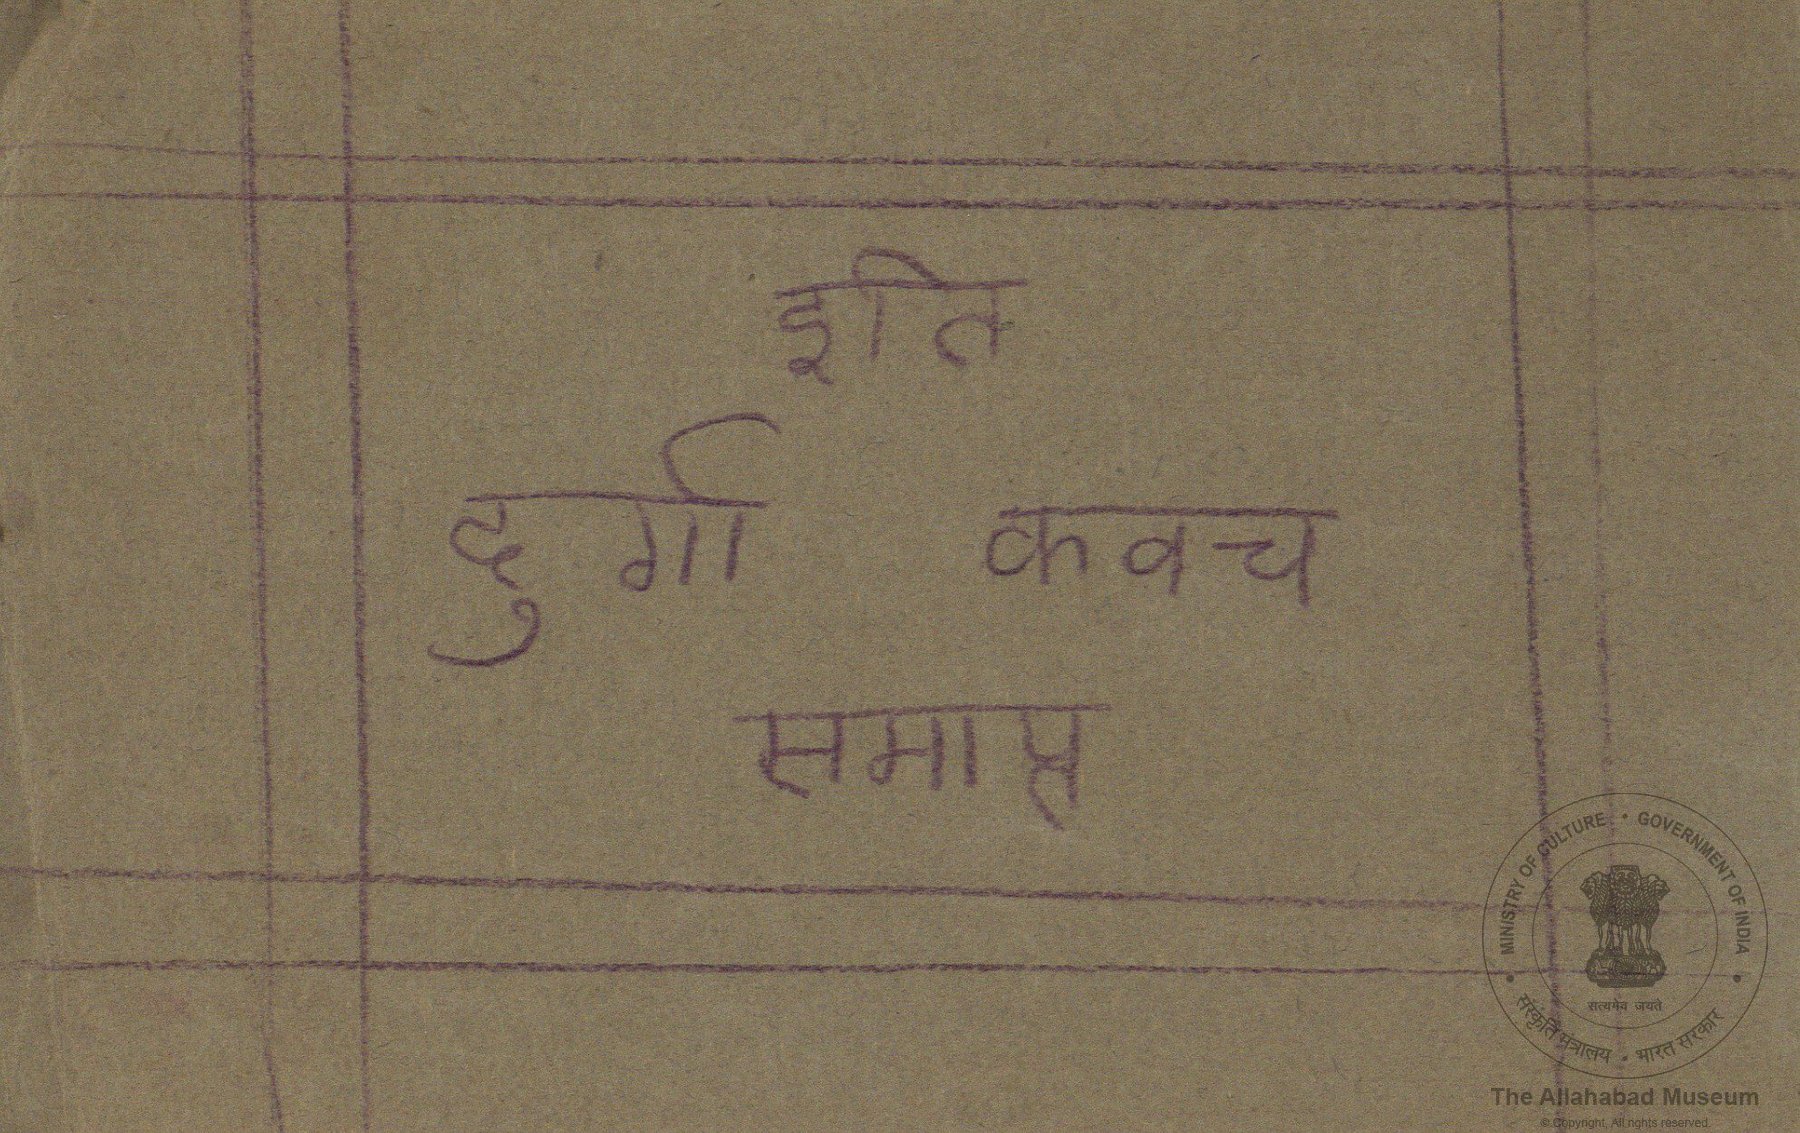 इति
दुर्गा कवच
समाप्त
MINISTRY OF CULTURE • GOVERNMENT OF INDIA
सत्यमेव जयते
संस्कृति मंत्रालय • भारत सरकार
The Allahabad Museum
© Copyright, All rights reserved.